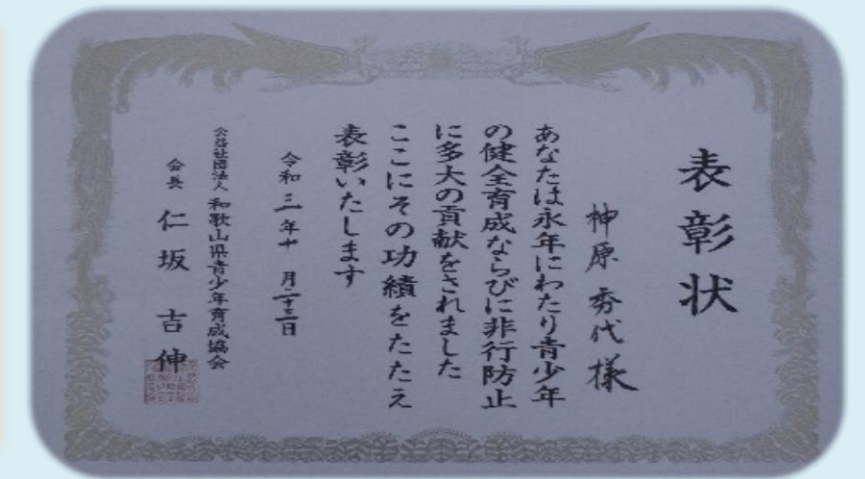 表彰状
神原秀代様
あなたは永年にわたり青少年
の健全育成ならびに非行防止
に多大の貢献をされました
ここにその功績をたたえ
表彰いたします
令和三年十月二十三日
公益社団法人 和歌山県青少年育成協会
会長 仁坂吉伸